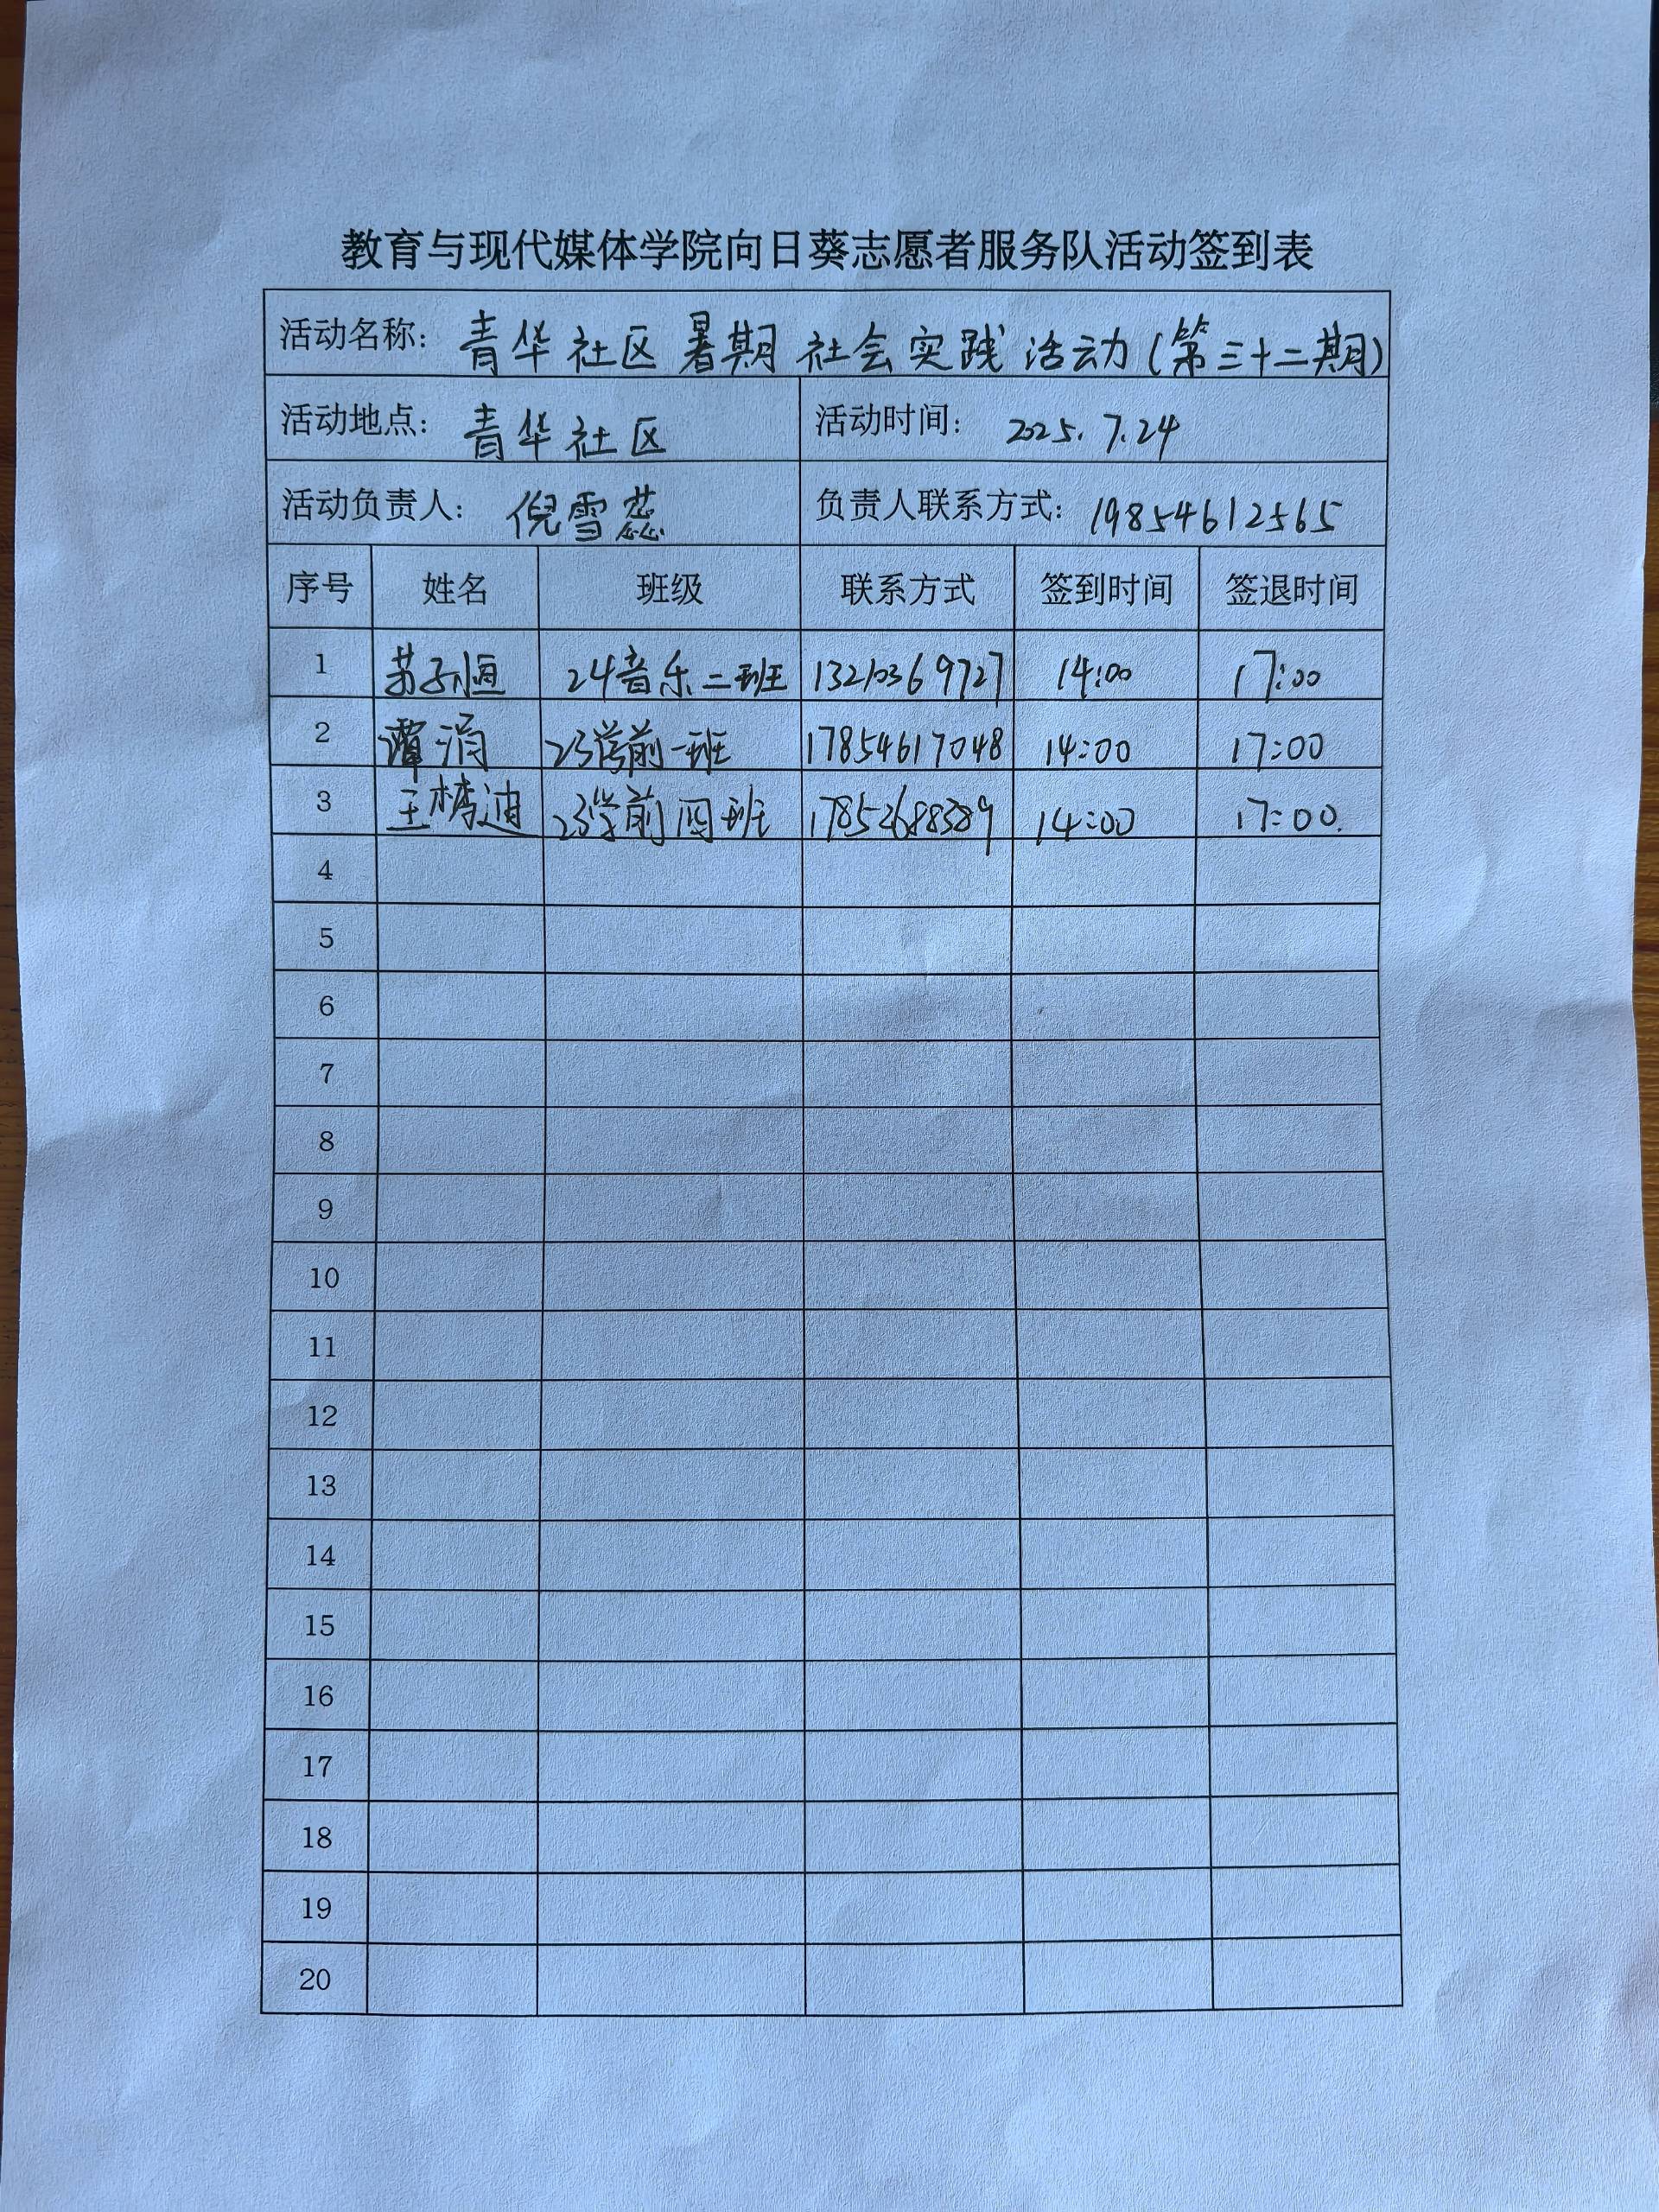 教育与现代媒体学院向日葵志愿者服务队活动签到表
活动名称: 青华社区暑期社会实践活动(第三十二期)
活动地点: 青华社区 活动时间: 2025.7.24
活动负责人: 倪雪蕊 负责人联系方式: 19854612565
序号 姓名 班级 联系方式 签到时间 签退时间
1 苏子恒 24音乐二班 13210369727 14:00 17:00
2 谭涓 23学前一班 17854617048 14:00 17:00
3 王梼迪 23学前四班 17852688389 14:00 17:00.
4
5
6
7
8
9
10
11
12
13
14
15
16
17
18
19
20